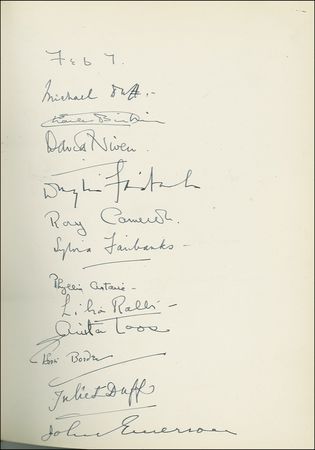 Feb 7.
Michael Duff.-
Charles Birkin
David Niven.
Douglas Fairbanks
Rory Cameron.
Sylvia Fairbanks -
Phyllis Astaire -
Lilia Ralli -
Anita Loos
Borden
Juliet Duff
John Emerson